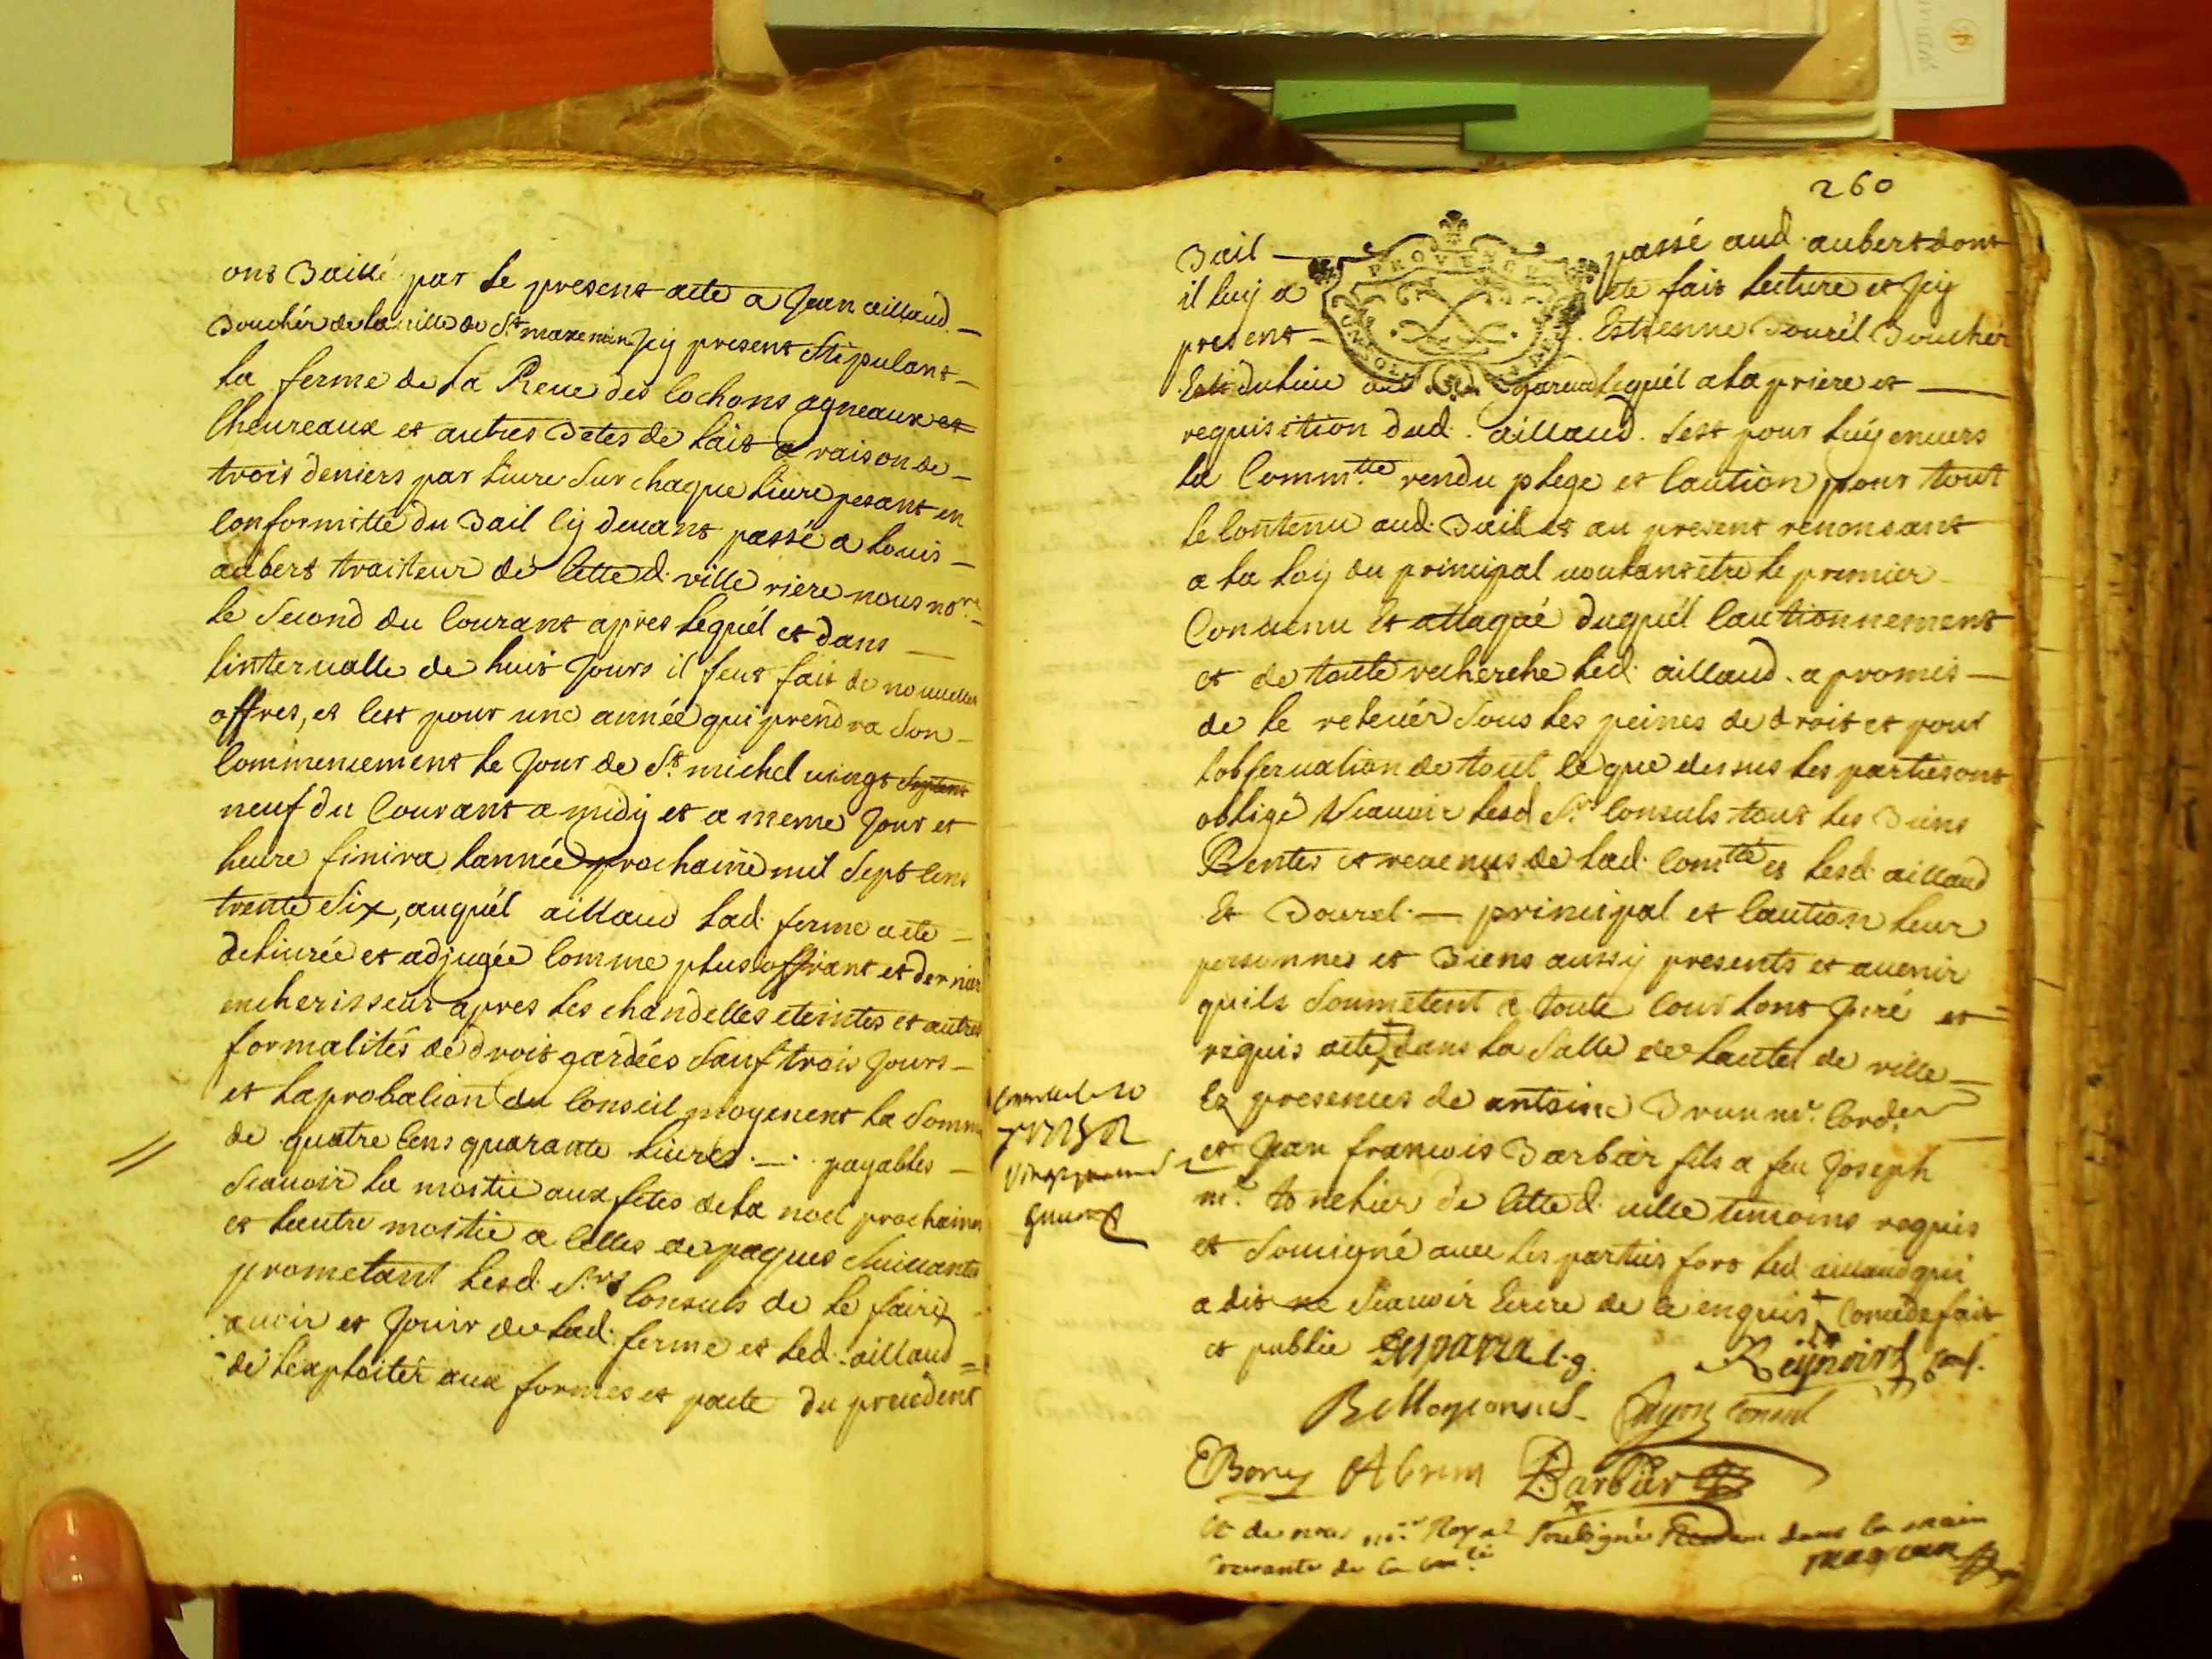 ont Baillé par le present acte a Jean aillaud
Bouchér de la ville de St maxemin Jcy present Stipulant
la ferme de la Reue des Cochons agneaux et
Cheureaux et autres Betes de lait a raison de
trois deniers par Liure Sur chaque Liure pesant en
Conformitté du Bail Cy deuant passé a Louis
aubert traiteur de Cette d. ville riere nous nore
le Second du Courant apres lequél et dans
lintervalle de huit Jours il feut fait de nouuelles
offres, et Cest pour une année qui prendra Son
Commencement le Jour de St michel uingt
neuf du Courant a midy et a meme Jour et
heure finira lannée prochaine mil Sept Cens
trente Six, auquél aillaud lad. ferme a ete
deliurée et adjugée Comme plus offrant et dernier
encherisseur apres les chandelles eteintes et autres
formalités de droit gardées Sauf trois Jours
et laprobation du Conseil moyenent la Somme
de quatre Cens quarante Liures payables
Scauoir la moitie aux fetes de la noel prochaines
et lautre moitie a Celles de paques Suiuantes
prometant lesd. Srs Consuls de le faire
auoir et Jouir de lad. ferme et led. aillaud
de lexploiter aux formes et pacte du precedent
260
Bail passé aud. aubert dont
il luy a ete fait lecture et Jcy
present Estienne Bourél Boucher
lequél a la priere et
requisition dud. aillaud. Sest pour luy enuers
la Commtté rendu plege et Caution pour tout
le Contenu aud. Bail et au present renonsant
a la loy du principal uoulant etre le premier
Conuenu et attaqué duquél Cautionnement
et de toute recherche led. aillaud a promis
de le releuér Sous les peines de droit et pour
lobseruation de tout Ce que dessus les parties ont
obligé Scauoir lesd. Srs Consuls tout les Biens
Rentes et reuenus de lad. Comtté et lesd. aillaud
Et Bourel principal et Caution leur
personnes et Biens aussy presents et auenir
quils Soumetent a toute Cour lont Juré et
requis acte dans la Salle de lautel de ville
Ez presences de antoine Brun mr. Cord.er
et Jean francois Barbier fils a feu Joseph
mr. tonelier de Cette d. uille temoins requis
et Sousigné auec les parties fors led. aillaud qui
a dit ne Scauoir Ecrire de Ce enquis Concede fait
et publie
PROVENCE
Reynoird
Consul
Bory ABrun Barbier
Et de nous nore Royal Soubsigné dans la main
Courante de la Comté